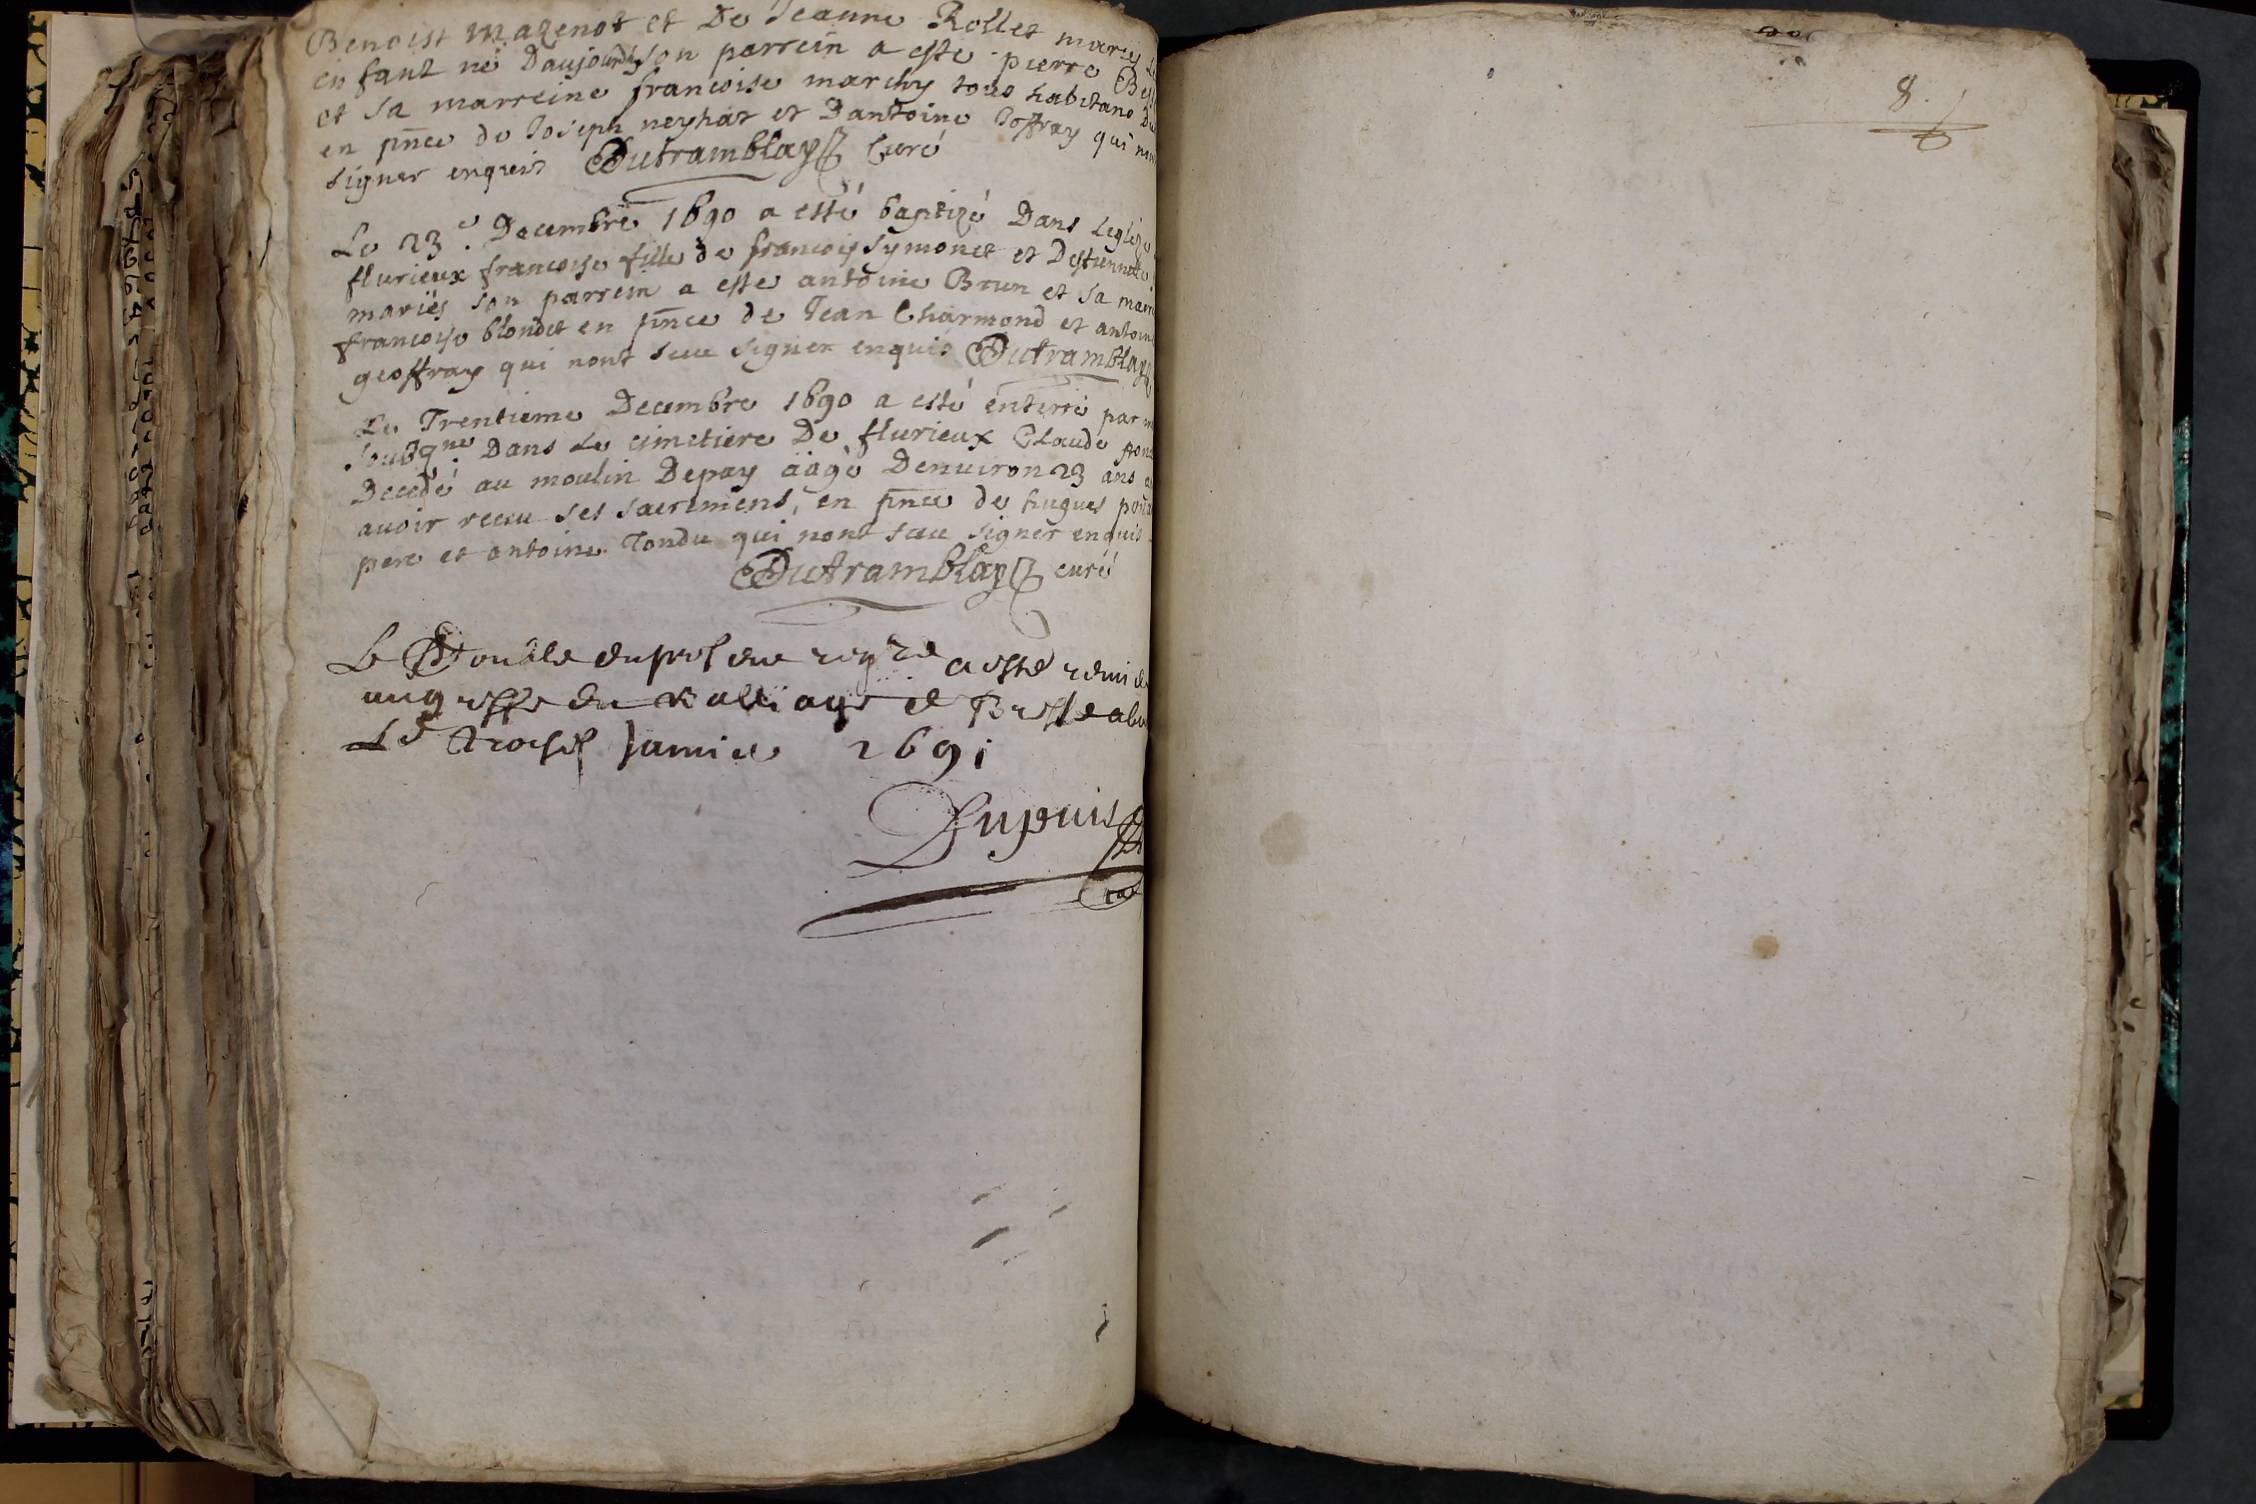 Benoist mazenot et De Jeanne Rollet mariez
enfant né Daujourdhy son parrein a este pierre
et sa marreine francoise marchy tous habitans Du
en pnce de Joseph neyhat et Dantoine Joffray qui
signer enquis Dutramblay Curé
Le 23e. Decembre 1690 a esté baptizé Dans Leglize
flurieux francoise fille de francois symonet et Destiennette
mariés son parrein a este antoine Brun et sa
francoise blondet en pnce de Jean Charmond et
geoffray qui nont sceu signer enquis Dutramblay
Le Trentieme Decembre 1690 a esté enterré par
soubgne Dans Le cimetiere De flurieux Claude
Decedé au moulin Depay aagé Denuiron 23 ans
auoir receu ses sacremens, en pnce de hugues
pere et antoine Tondu qui nont sceu signer enquis
Dutramblay curé
Le Double du pnt a esté
au greffe du Balliage
Le Janvier 1691
Dupuis
8.